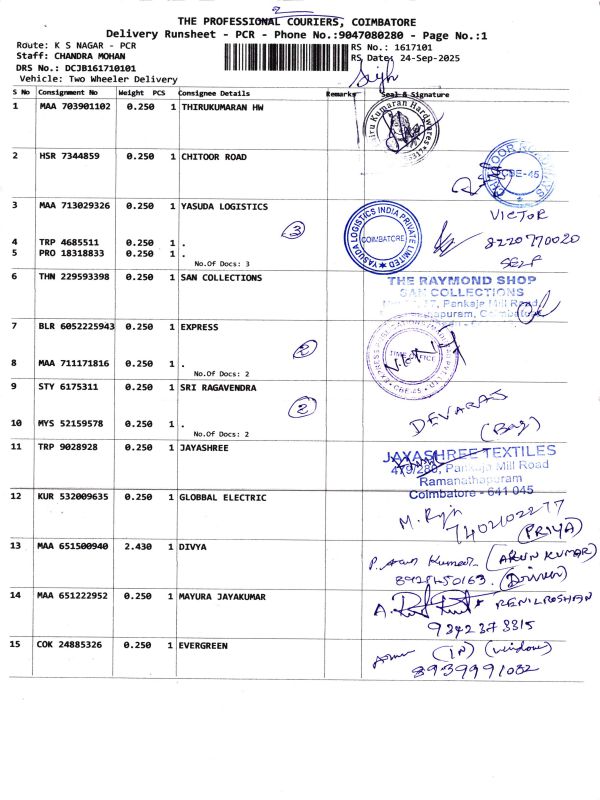 2
THE PROFESSIONAL COURIERS, COIMBATORE
Delivery Runsheet - PCR - Phone No.:9047080280 - Page No.:1
Route: K S NAGAR - PCR
RS No.: 1617101
Staff: CHANDRA MOHAN
RS Date: 24-Sep-2025
DRS No.: DCJB161710101
Vehicle: Two Wheeler Delivery
S No Consignment No Weight PCS Consignee Details Remarks Seal & Signature
1 MAA 703901102 0.250 1 THIRUKUMARAN HW
2 HSR 7344859 0.250 1 CHITOOR ROAD
CBE-45
3 MAA 713029326 0.250 1 YASUDA LOGISTICS
YASUDA LOGISTICS INDIA PRIVATE LIMITED
COIMBATORE
VICTOR
3
8220770020
4 TRP 4685511 0.250 1 .
5 PRO 18318833 0.250 1 .
SELF
No.Of Docs: 3
6 THN 229593398 0.250 1 SAN COLLECTIONS
THE RAYMOND SHOP
SAN COLLECTIONS
Pankaja Mill Road,
7 BLR 6052225943 0.250 1 EXPRESS
2
8 MAA 711171816 0.250 1 .
No.Of Docs: 2
9 STY 6175311 0.250 1 SRI RAGAVENDRA
2
DEVARAJ
10 MYS 52159578 0.250 1 .
(Bag)
No.Of Docs: 2
11 TRP 9028928 0.250 1 JAYASHREE
JAYASHREE TEXTILES
Pankaja Mill Road
Ramanathapuram
Coimbatore - 641 045
12 KUR 532009635 0.250 1 GLOBBAL ELECTRIC
7402102277
(PRIYA)
13 MAA 651500940 2.430 1 DIVYA
(ARUN KUMAR)
(Driver)
14 MAA 651222952 0.250 1 MAYURA JAYAKUMAR
RENILROSHAN
9342373315
15 COK 24885326 0.250 1 EVERGREEN
(IN) (window)
8939991032